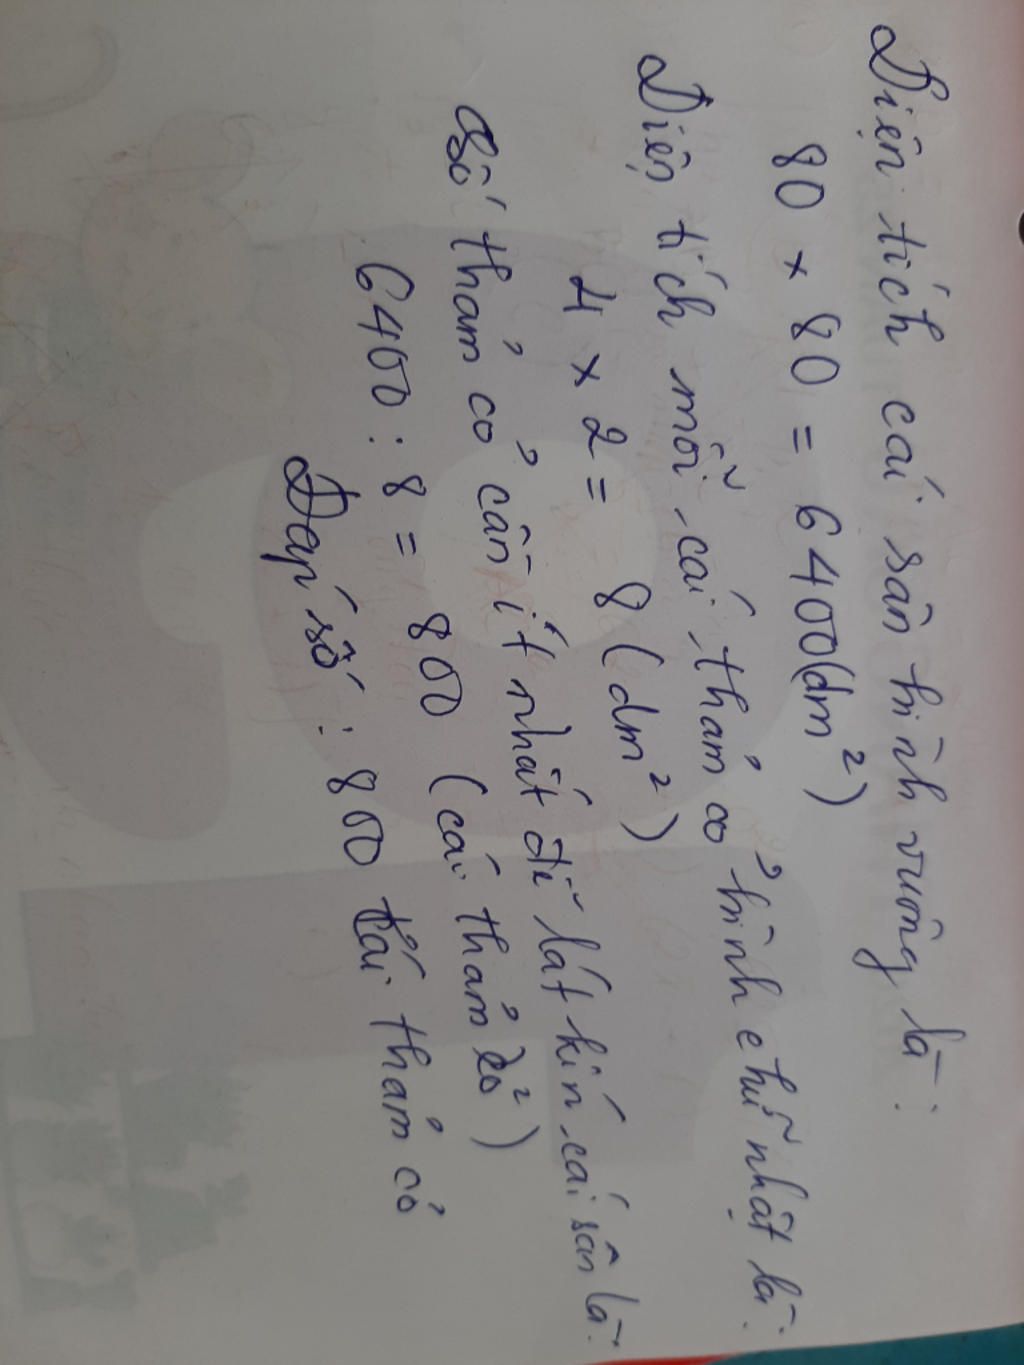 Diện tích cái sân hình vuông là:
80 × 80 = 6400(dm²)
Diện tích mỗi cái thảm cỏ hình chữ nhật là:
4 × 2 = 8 (dm²)
Số thảm cỏ cần ít nhất để lát kín cái sân là:
6400 : 8 = 800 (cái thảm cỏ)
Đáp số : 800 cái thảm cỏ